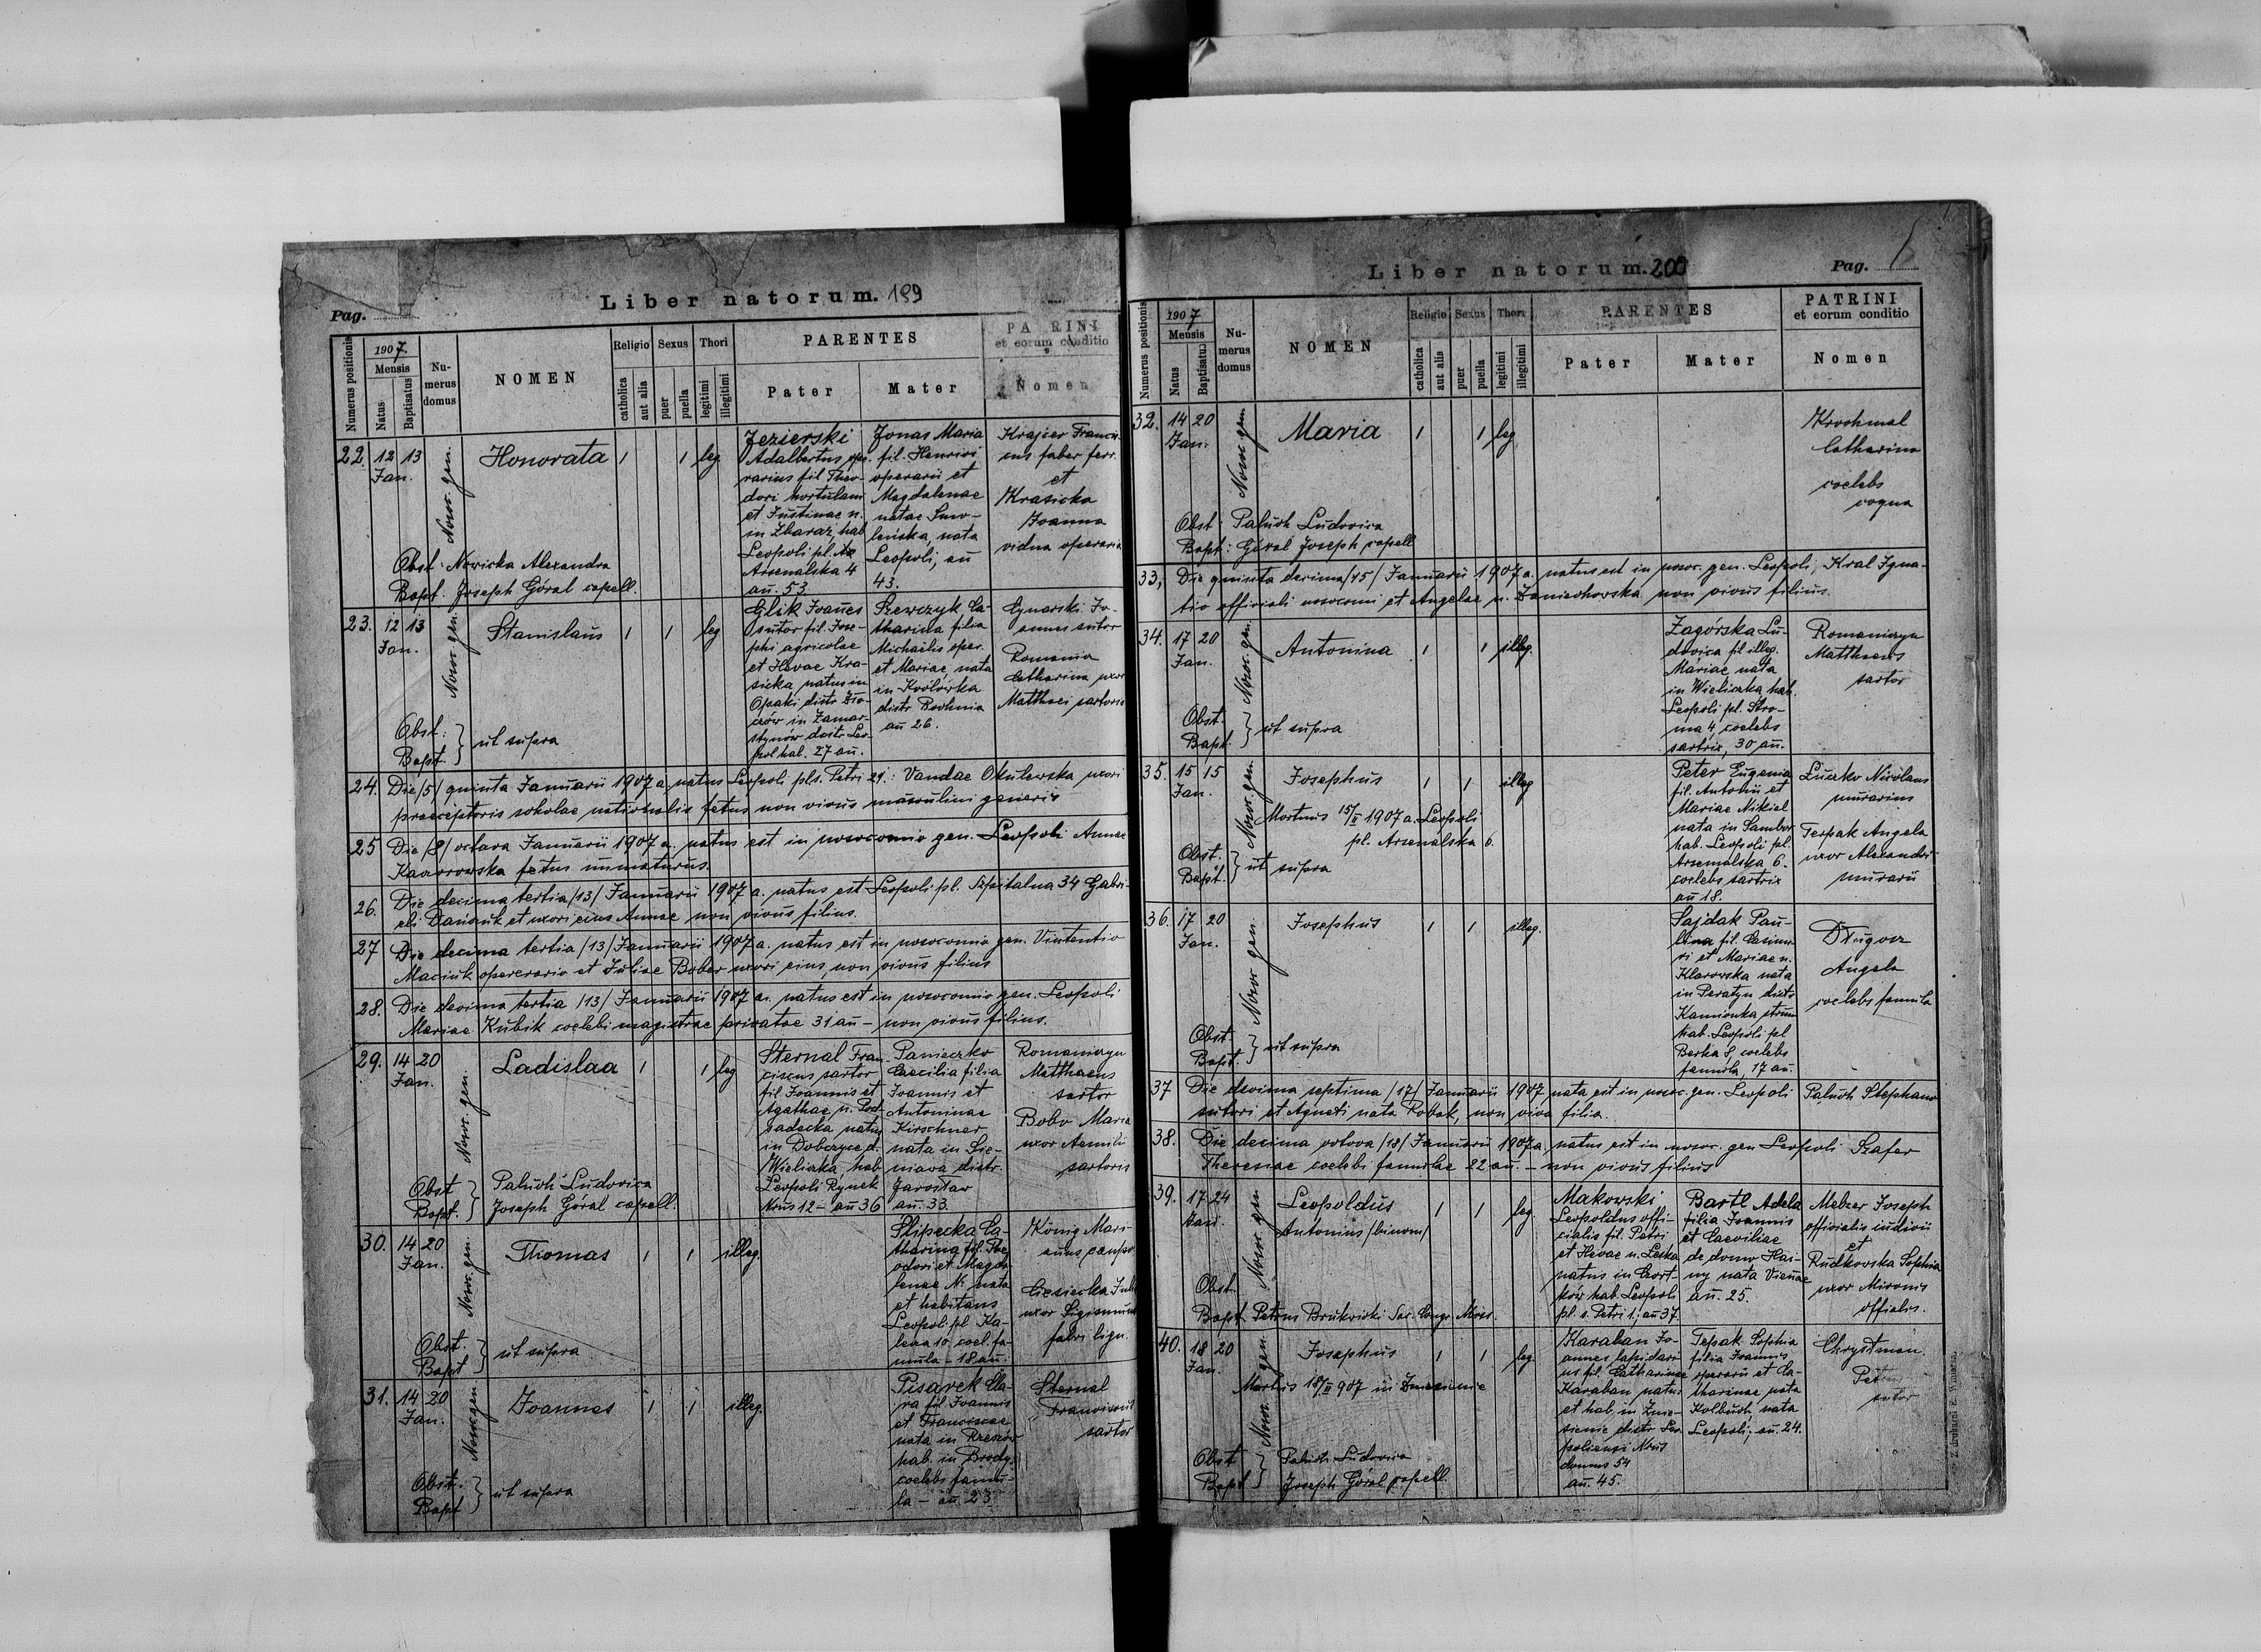 Liber natorum. 199
Pag.
Numerus positionis
1907.
Mensis
Natus
Baptisatus
Numerus domus
NOMEN
Religio
catholica
aut alia
Sexus
puer
puella
Thori
legitimi
illegitimi
PARENTES
Pater
Mater
PA RINI
et eorum conditio
Nomen
22. 12 13
Jan.
Nosoc. gen.
Honorata 1 1 leg.
Jezierski
Adalbertus ope-
rarius fil. Theo-
dori hortulani
et Justinae n.
in Zbaraż, hab
Leopoli pl.
Arsenalska 4
an. 53
Jonas Maria
fil. Henrici
operarii et
Magdalenae
natae Smo-
leńska, nata
Leopoli, an
43.
Krajier Francis
cus faber ferr.
et
Krasicka
Joanna
vidua operaria
Obst: Nowicka Alexandra
Bapt: Joseph Góral capell.
23. 12 13
Jan.
Nosoc. gen.
Stanislaus 1 1 leg
Glik Joannes
sutor fil. Jose-
phi agricolae
et Hevae Kra-
sicka natus in
Opaki distr. Zło-
czów in Zamar-
stynów distr. Leo-
pol hab. 27 an.
Szewczyk Ca-
tharina filia
Michaelis oper.
et Mariae, nata
in Królówka
distr Bochnia
an 26.
Cynarski Jo-
annes sutor
Romania
Catharina uxor
Matthaei sartoris
Obst:
Bapt. } ut supra
24. Die /5/ quinta Januarii 1907 a. natus Leopoli pls. Petri 21.: Vandae Okulewska uxori
praeceptoris scholae nationalis fetus non vivus masculini generis
25 Die /8/ octava Januarii 1907 a. natus est in nosocomio gen. Leopoli Annae
Kaczorowska fetus immaturus.
26. Die decima tertia /13/ Januarii 1907 a. natus est Leopoli pl. Szpitalna 34 Gabri-
eli Daniuk et uxori eius Annae non vivus filius.
27 Die decima tertia /13/ Januarii 1907 a. natus est in nosocomio gen. Vintentio
Maciuk operrario et Juliae Bober uxori eius, non vivus filius
28. Die decima tertia /13/ Januarii 1907 a. natus est in nosocomio gen. Leopoli
Mariae Kubik coelebi magistrae privatae 31 an - non vivus filius.
29. 14 20
Jan.
Nosoc. gen.
Ladislaa 1 1 leg
Sternal Fran-
ciscus sartor
fil. Joannis et
Agathae n. Pod-
sadecka natus
in Dobczyce d.
Wieliczka, hab
Leopoli Rynek
Nrus 12 - an 36
Panieczko
Caecilia filia
Joannis et
Antoninae
Kirschner
nata in Sie-
niawa distr.
Jarosław
an. 33.
Romaniczyn
Matthaeus
sartor
Bobv Maria
uxor Aemilii
sartoris
Obst
Bapt. } Paluch Ludovica
Joseph Góral capell.
30. 14 20
Jan.
Nosoc. gen.
Thomas 1 1 illeg.
Slipecka Ca-
tharina fil. The-
odori et Magda
lenae N. nata
et habitans
Leopoli pl Ka-
lecza 10, coel. fa-
mula - 18 an.
König Mari-
anus
Ciesiecka Julia
uxor Sigismundi
fabri lign.
Obst.
Bapt } ut supra
31. 14 20
Jan.
Nosoc. gen
Joannes 1 1 illeg.
Pisarek Cla-
ra fil. Joannis
et Franciscae
nata in Rzeszów
hab. in Brody,
coelebs famu-
la - an. 23
Sternal
Franciscus
sartor
Obst.
Bapt } ut supra
Liber natorum. 200
Pag.
Numerus positionis
1907
Mensis
Natus
Baptisatus
Numerus domus
NOMEN
Religio
catholica
aut alia
Sexus
puer
puella
Thori
legitimi
illegitimi
PARENTES
Pater
Mater
PATRINI
et eorum conditio
Nomen
32. 14 20
Jan.
Nosoc. gen
Maria 1 1 leg
Krochmal
Catharina
coelebs
coqua
Obst: Paluch Ludovica
Bapt: Góral Joseph capell
33, Die quinta decima /15/ Januarii 1907 a. natus est in nosoc. gen. Leopoli, Kral Igna-
tio officiali nosocomi et Angelae n. Daniechowska non vivus filius.
34. 17 20
Jan.
Nosoc. gen.
Antonina 1 1 illeg.
Zagórska Lu-
dovica fil illeg.
Mariae nata
in Wieliczka, hab.
Leopoli pl. Stro-
ma 4, coelebs
sartrix, 30 an.
Romaniczyn
Matthaeus
sartor
Obst.
Bapt. } ut supra
35. 15 15
Jan.
Nosoc. gen.
Josephus 1 1 illeg
Mortuus 15/II 1907 a. Leopoli
pl. Arsenalska 6.
Peter Eugenia
fil. Antonii et
Mariae Nikiel
nata in Sambor
hab. Leopoli pl.
Arsenalska 6.
coelebs sartrix
an 18.
Łuczko Nicolaus
murarius
Terpak Angela
uxor Alexandri
murarii
Obst.
Bapt. } ut supra
36. 17 20
Jan.
Nosoc. gen.
Josephus 1 1 illeg.
Sajdak Pau-
lina fil. Casimi-
ri et Mariae n.
Klarowska nata
in Peratyn distr
Kamionka strum
hab. Leopoli pl
Berka 8, coelebs
famula, 17 an.
Długosz
Angela
coelebs famula
Obst.
Bapt. } ut supra
37 Die decima septima /17/ Januarii 1907 nata est in nosoc. gen. Leopoli Paluch Stephano
sutori et Agneti nata Robak, non viva filia.
38. Die decima octova /18/ Januarii 1907 a. natus est in nosoc. gen Leopoli Szafer
Theresiae coelebi famulae 22 an. - non vivus filius
39. 17 24
Jan.
Nosoc. gen
Leopoldus 1 1 leg.
Antonius /binom/
Makowski
Leopoldus offi-
cialis fil. Petri
et Hevae n. Leska
natus in Czort-
ków hab. Leopoli
pl. s. Petri 1; an 37
Bartl Adela
filia Joannis
et Caeciliae
de domo Hai-
ny nata Viennae
an. 25.
Melzer Joseph
officialis iudicii
et
Rudkowska Sophia
uxor Mironis
officialis.
Obst.
Bapt. Petrus Brukwicki Sac. Congr. Miss.
40. 18 20
Jan.
Nosoc. gen
Josephus 1 1 leg.
Mortuus 18/II 907 in Zniesienie
Karaban Jo-
annes lapidari
us fil. Catharinae
Karaban, natus
et hab. in Znie-
sienie distr. Leo
poliensi Nrus
domus 54
an. 45.
Tepak Sophia
filia Joannis
operarii et Ca-
tharinae nata
Kolbuch, nata
Leopoli; an. 24.
Chrystman
Petrus
sutor
Obst
Bapt } Paluch Ludovica
Joseph Góral capell.
Z drukarni E. Winiarza.